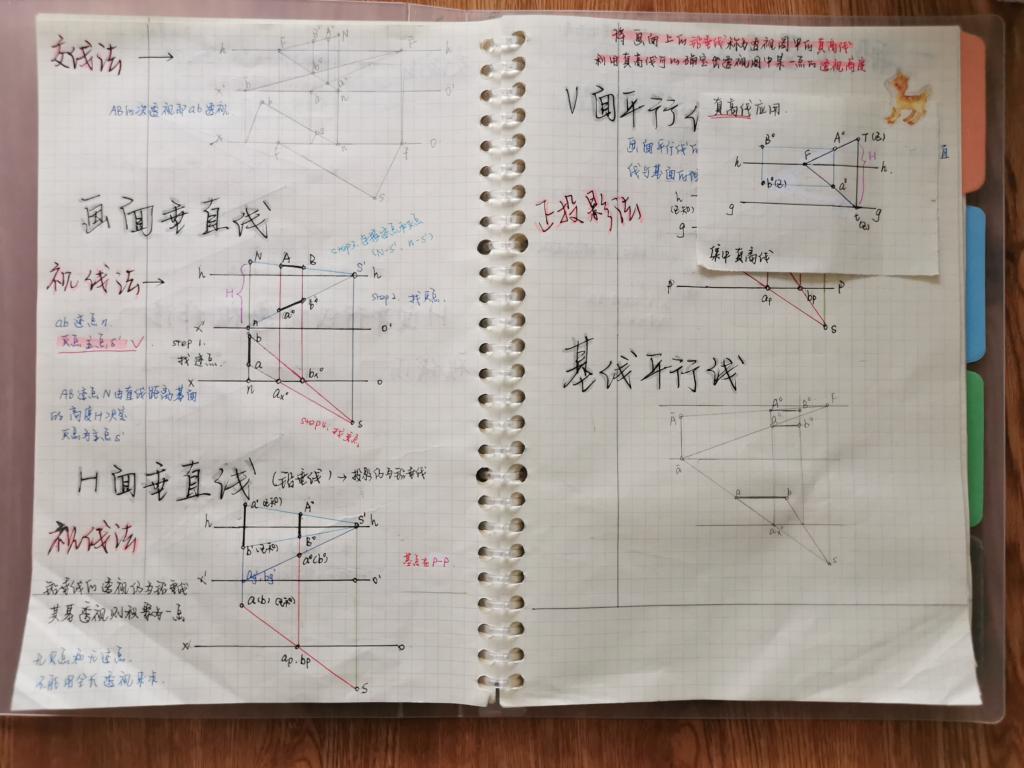 交线法
AB的次透视即ab透视
画面垂直线
视线法
ab迹点n.
灭点主点s'
step 1.
找迹点.
step 2. 找灭点.
(N-s', n-s')
AB迹点N由直线距离基面
的高度H决定
灭点为主点s'
H面垂直线 (铅垂线) → 投影仍为铅垂线
视线法
铅垂线的透视仍为铅垂线
其基透视则积聚为一点
无灭点和无迹点.
基点在p-p
h N A B s' h
H
a° B°
x' n o'
b
a
x n ax° bx° o
s
a'(已知) A°
h s' h
b'(已知) B°
a°(b°)
x' ag', bg' o'
a(b) (已知)
x ap, bp o
s
将画面上的铅垂线称为透视图中的真高线
利用真高线可以确定出透视图中某一点的透视高度
V面平行
画面平行线
线与基面
正投影法
h
(已知)
g
真高线应用.
B° A° T(Z)
h F H h.
b°(Z) a°
g t(Z) g
集中真高线
P ap bp P
s
基线平行线
A° B° F
b°
a
s